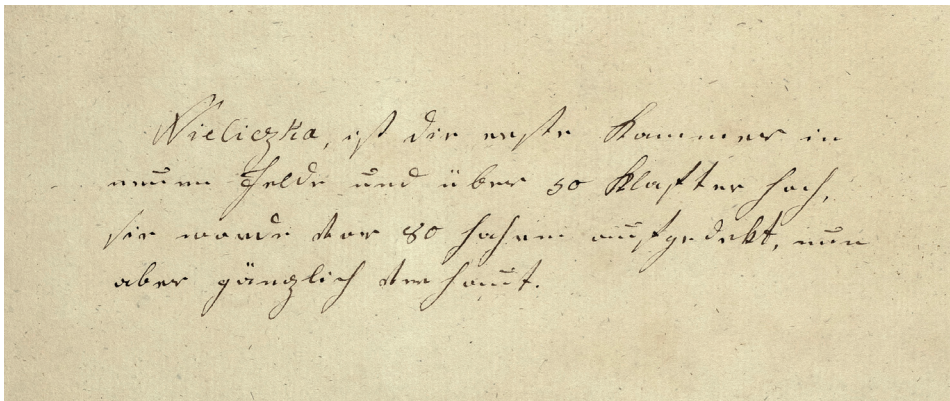 Wieliczka, ist die erste Kammer in
neuen Felde und über 50 Klafter hoch,
sie wurde vor 80 Jahren aufgedekt, nun
aber gänzlich verhaut.